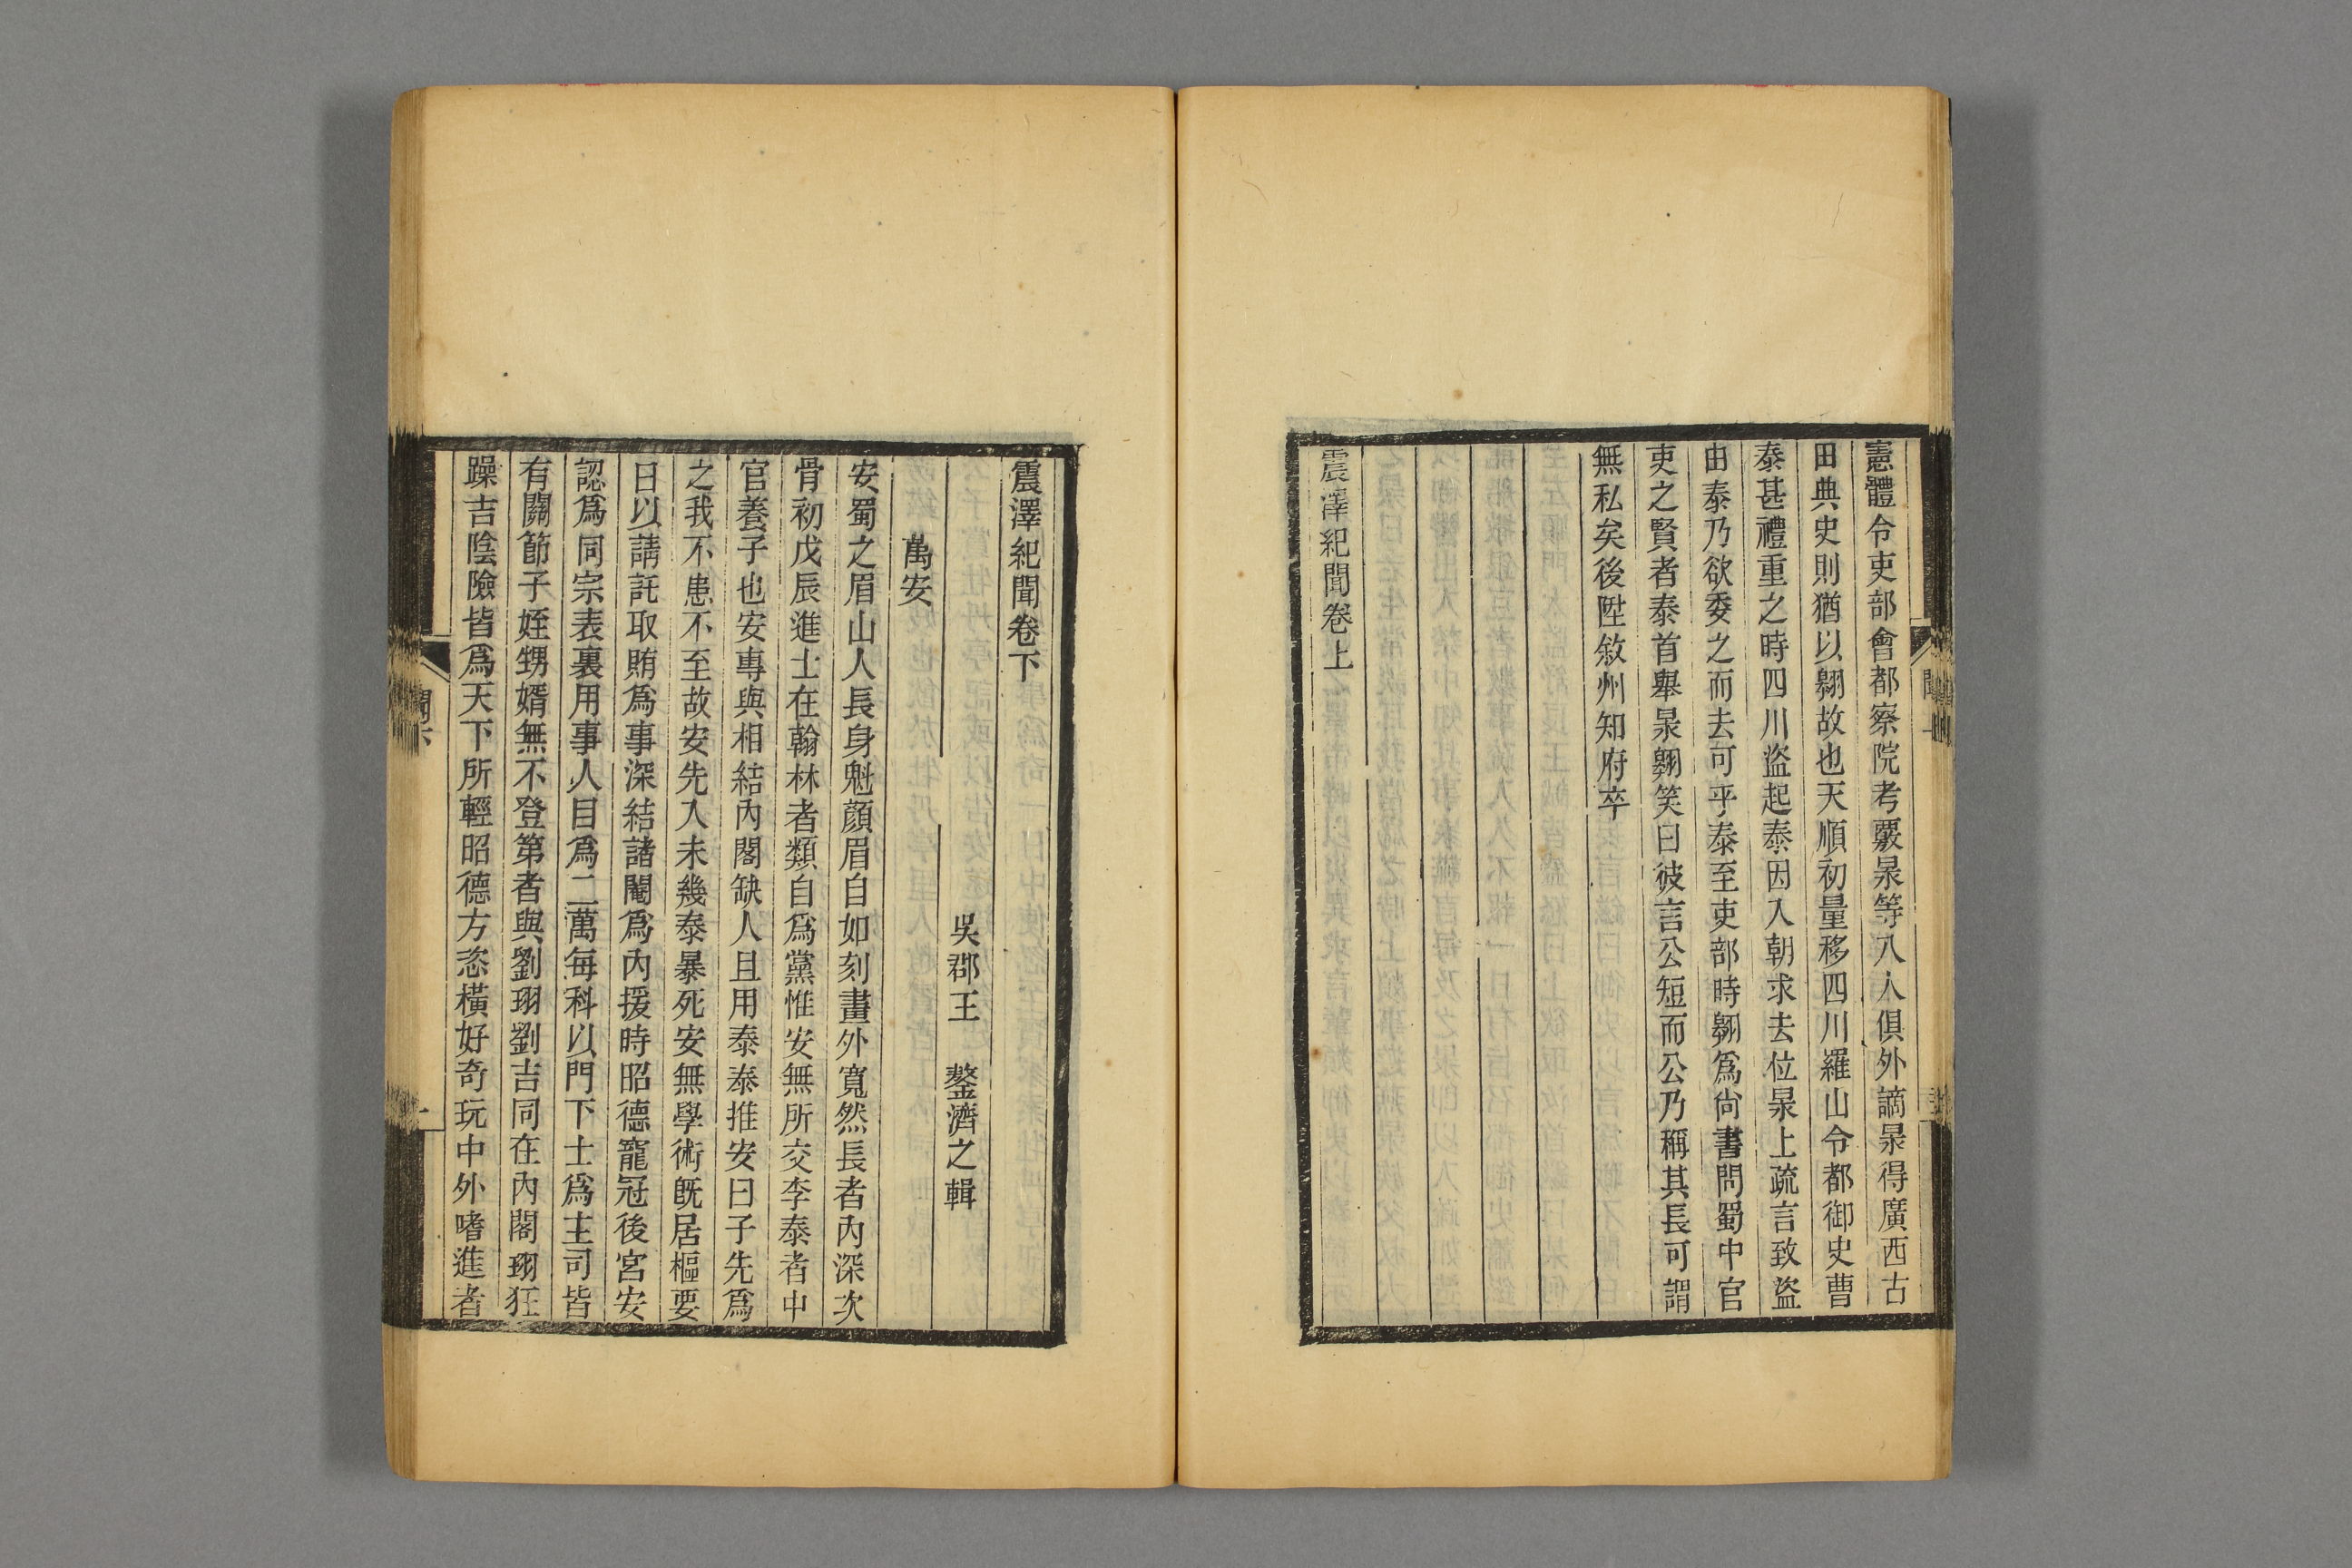 憲體令吏部會都察院考覈杲等八人俱外謫杲得廣西古
田典史則猶以翺故也天順初量移四川羅山令都御史曹
泰甚禮重之時四川盜起泰因入朝求去位杲上疏言致盜
由泰乃欲委之而去可乎泰至吏部時翺爲尚書問蜀中官
吏之賢者泰首舉杲翺笑曰彼言公短而公乃稱其長可謂
無私矣後陞敘州知府卒
震澤紀聞卷上
震澤紀聞卷下
吳郡王 鏊濟之輯
萬安
安蜀之眉山人長身魁顔眉自如刻畫外寬然長者內深次
骨初戊辰進士在翰林者類自爲黨惟安無所交李泰者中
官養子也安專與相結內閣缺人且用泰泰推安曰子先爲
之我不患不至故安先入未幾泰暴死安無學術旣居樞要
日以請託取賄爲事深結諸閹爲內援時昭德寵冠後宮安
認爲同宗表裏用事人目爲二萬每科以門下士爲主司皆
有關節子姪甥婿無不登第者與劉珝劉吉同在內閣珝狂
躁吉陰險皆爲天下所輕昭德方恣橫好奇玩中外嗜進者